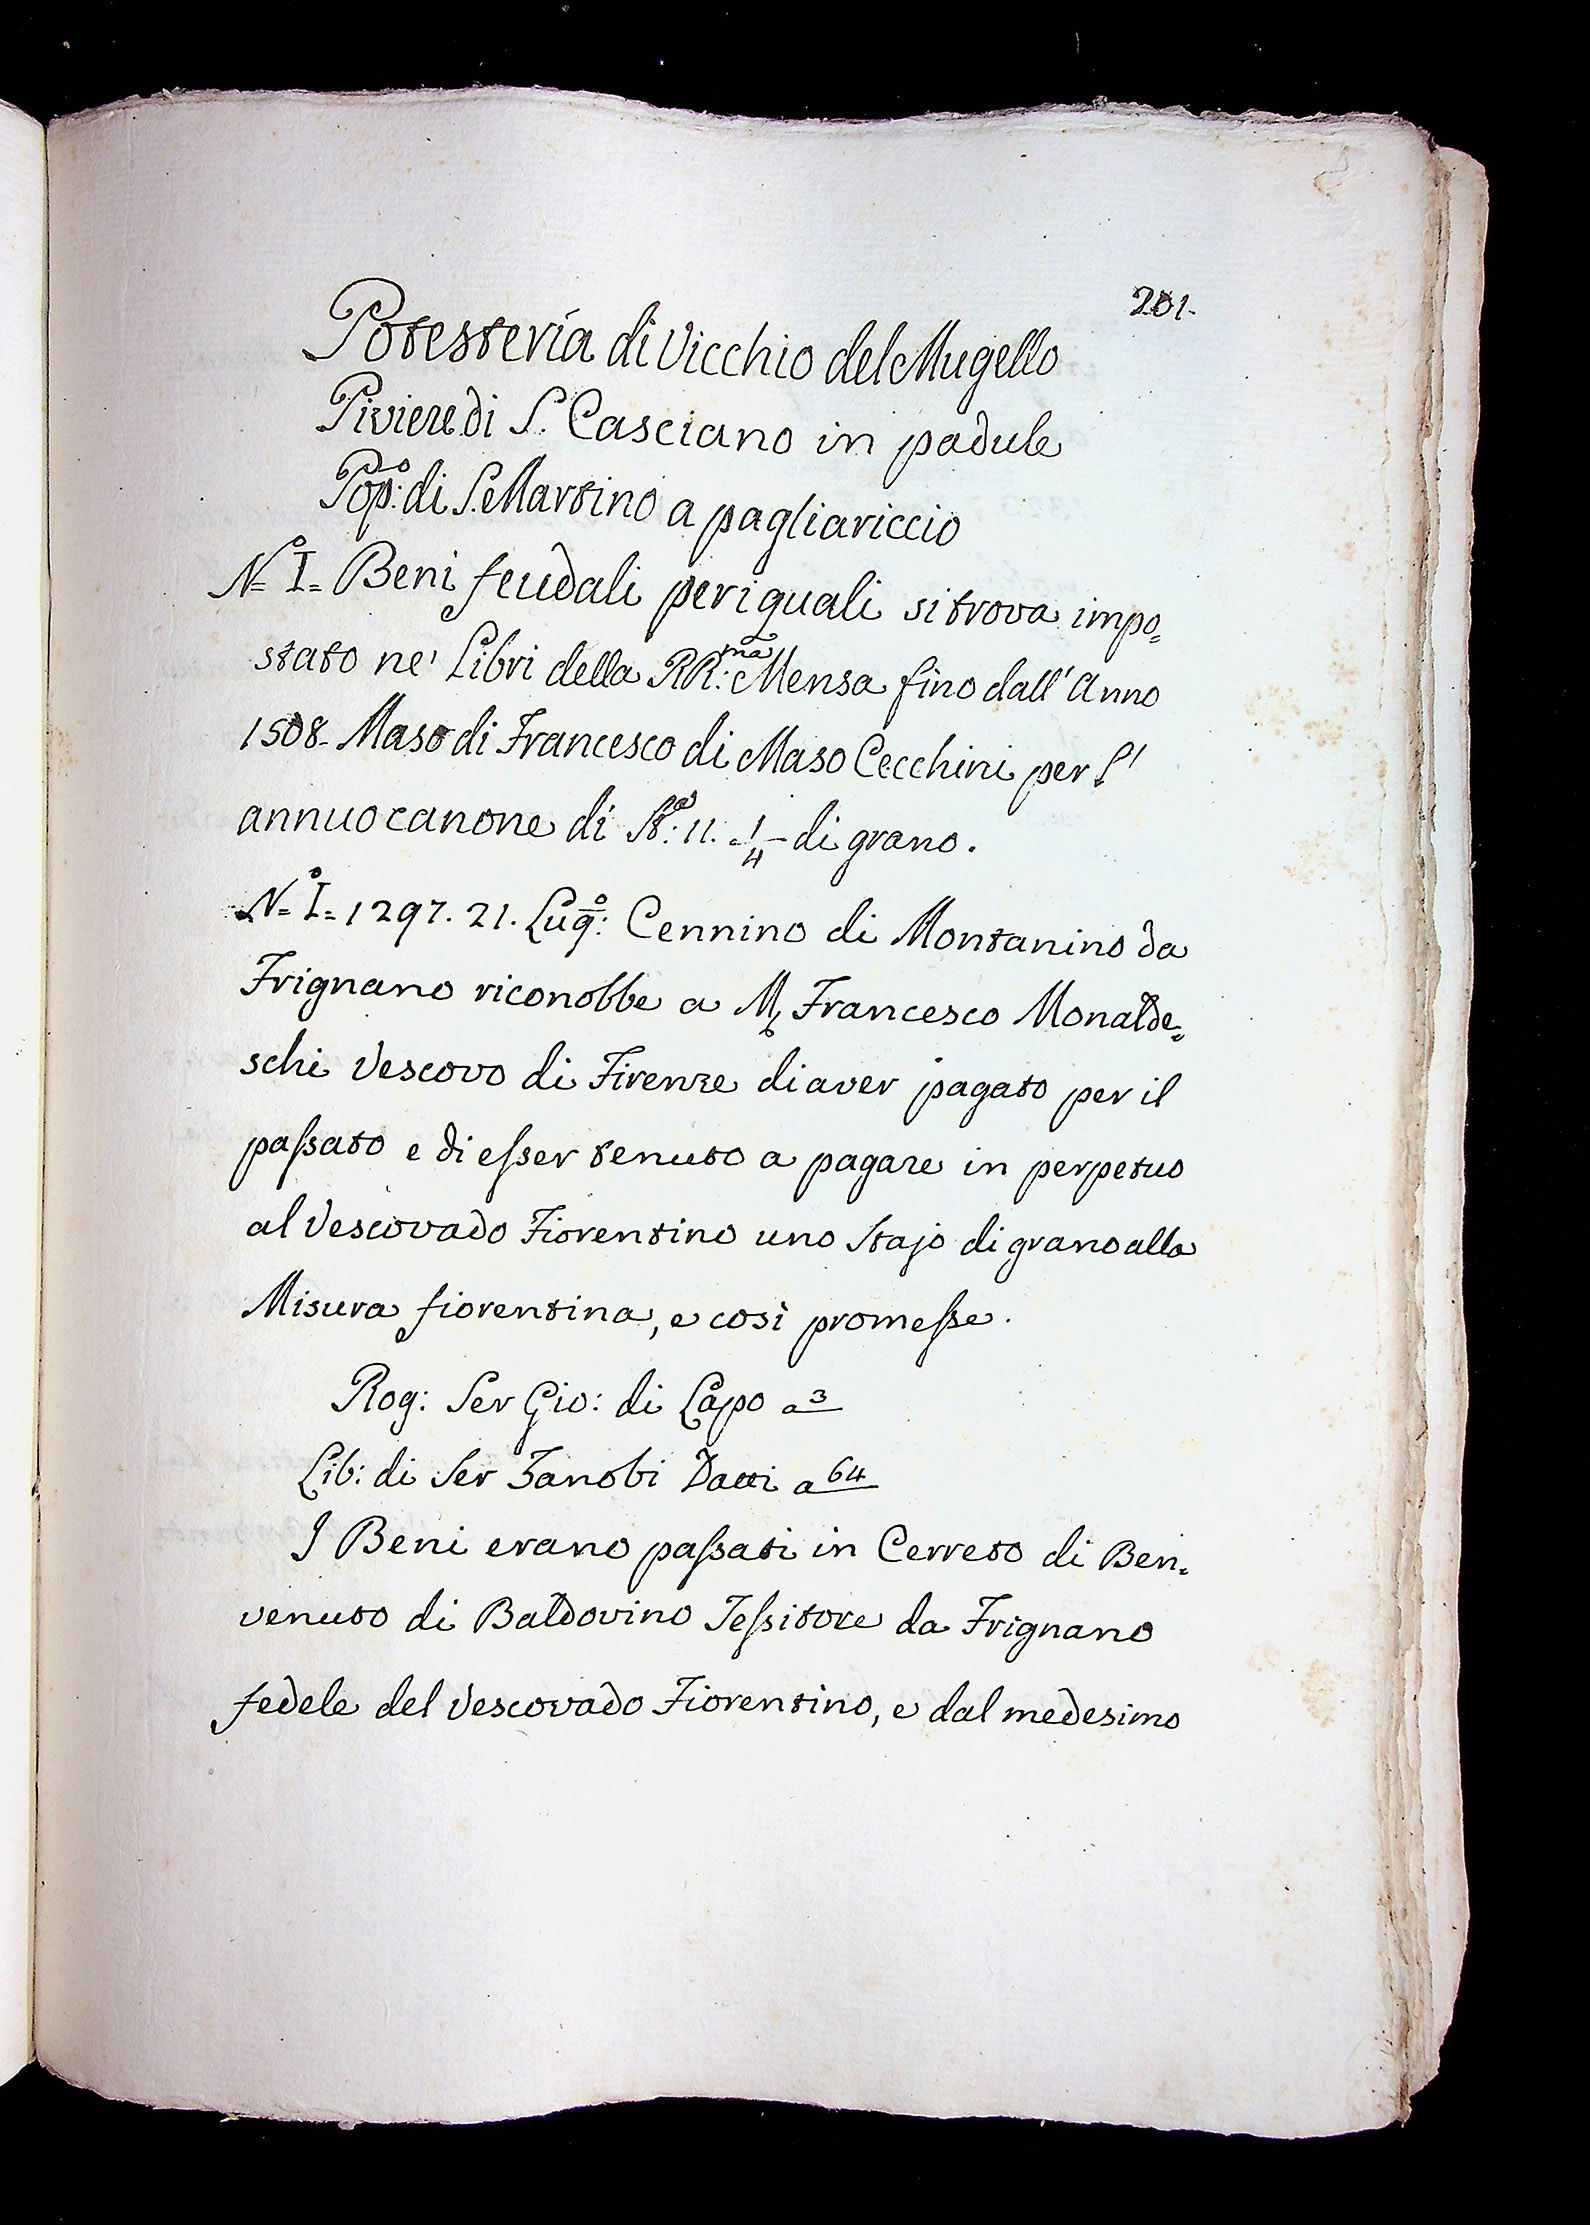 201.
Potesteria di Vicchio del Mugello
Piviere di S. Casciano in padule
Pop:o di S. Martino a pagliariccio
N=o I= Beni feudali per i quali si trova impo=
stato ne' Libri della RR:ma Mensa fino dall' Anno
1508. Maso di Francesco di Maso Cecchini per l'
annuo canone di St:a 11. 1/4 di grano.
N=o I= 1297. 21. Lug:o Cennino di Montanino da
Frignano riconobbe a M. Francesco Monalde=
schi Vescovo di Firenze di aver pagato per il
paſsato e di eſser tenuto a pagare in perpetuo
al Vescovado Fiorentino uno Stajo di grano alla
Misura fiorentina, e così promeſse.
Rog: Ser Gio: di Lapo a 3
Lib: di Ser Zanobi Datti a 64
I Beni erano paſsati in Cerreto di Ben=
venuto di Baldovino Teſsitore da Frignano
fedele del Vescovado Fiorentino, e dal medesimo